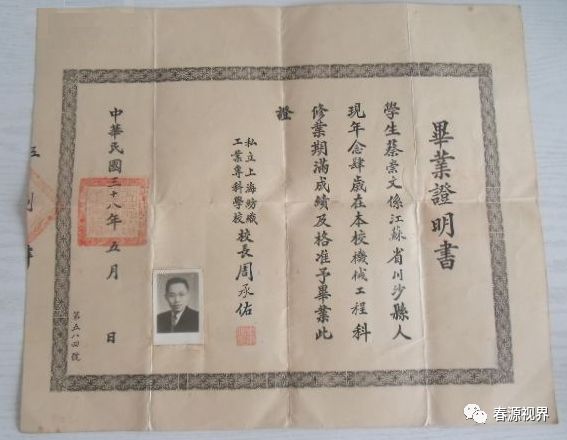 畢業證明書
學生蔡崇文係江蘇省川沙縣人
現年念肆歲在本校機械工程科
修業期滿成績及格准予畢業此
證
私立上海紡織
工業專科學校
校長周承佑
中華民國三十八年五月 日
第五八四號
春源视界